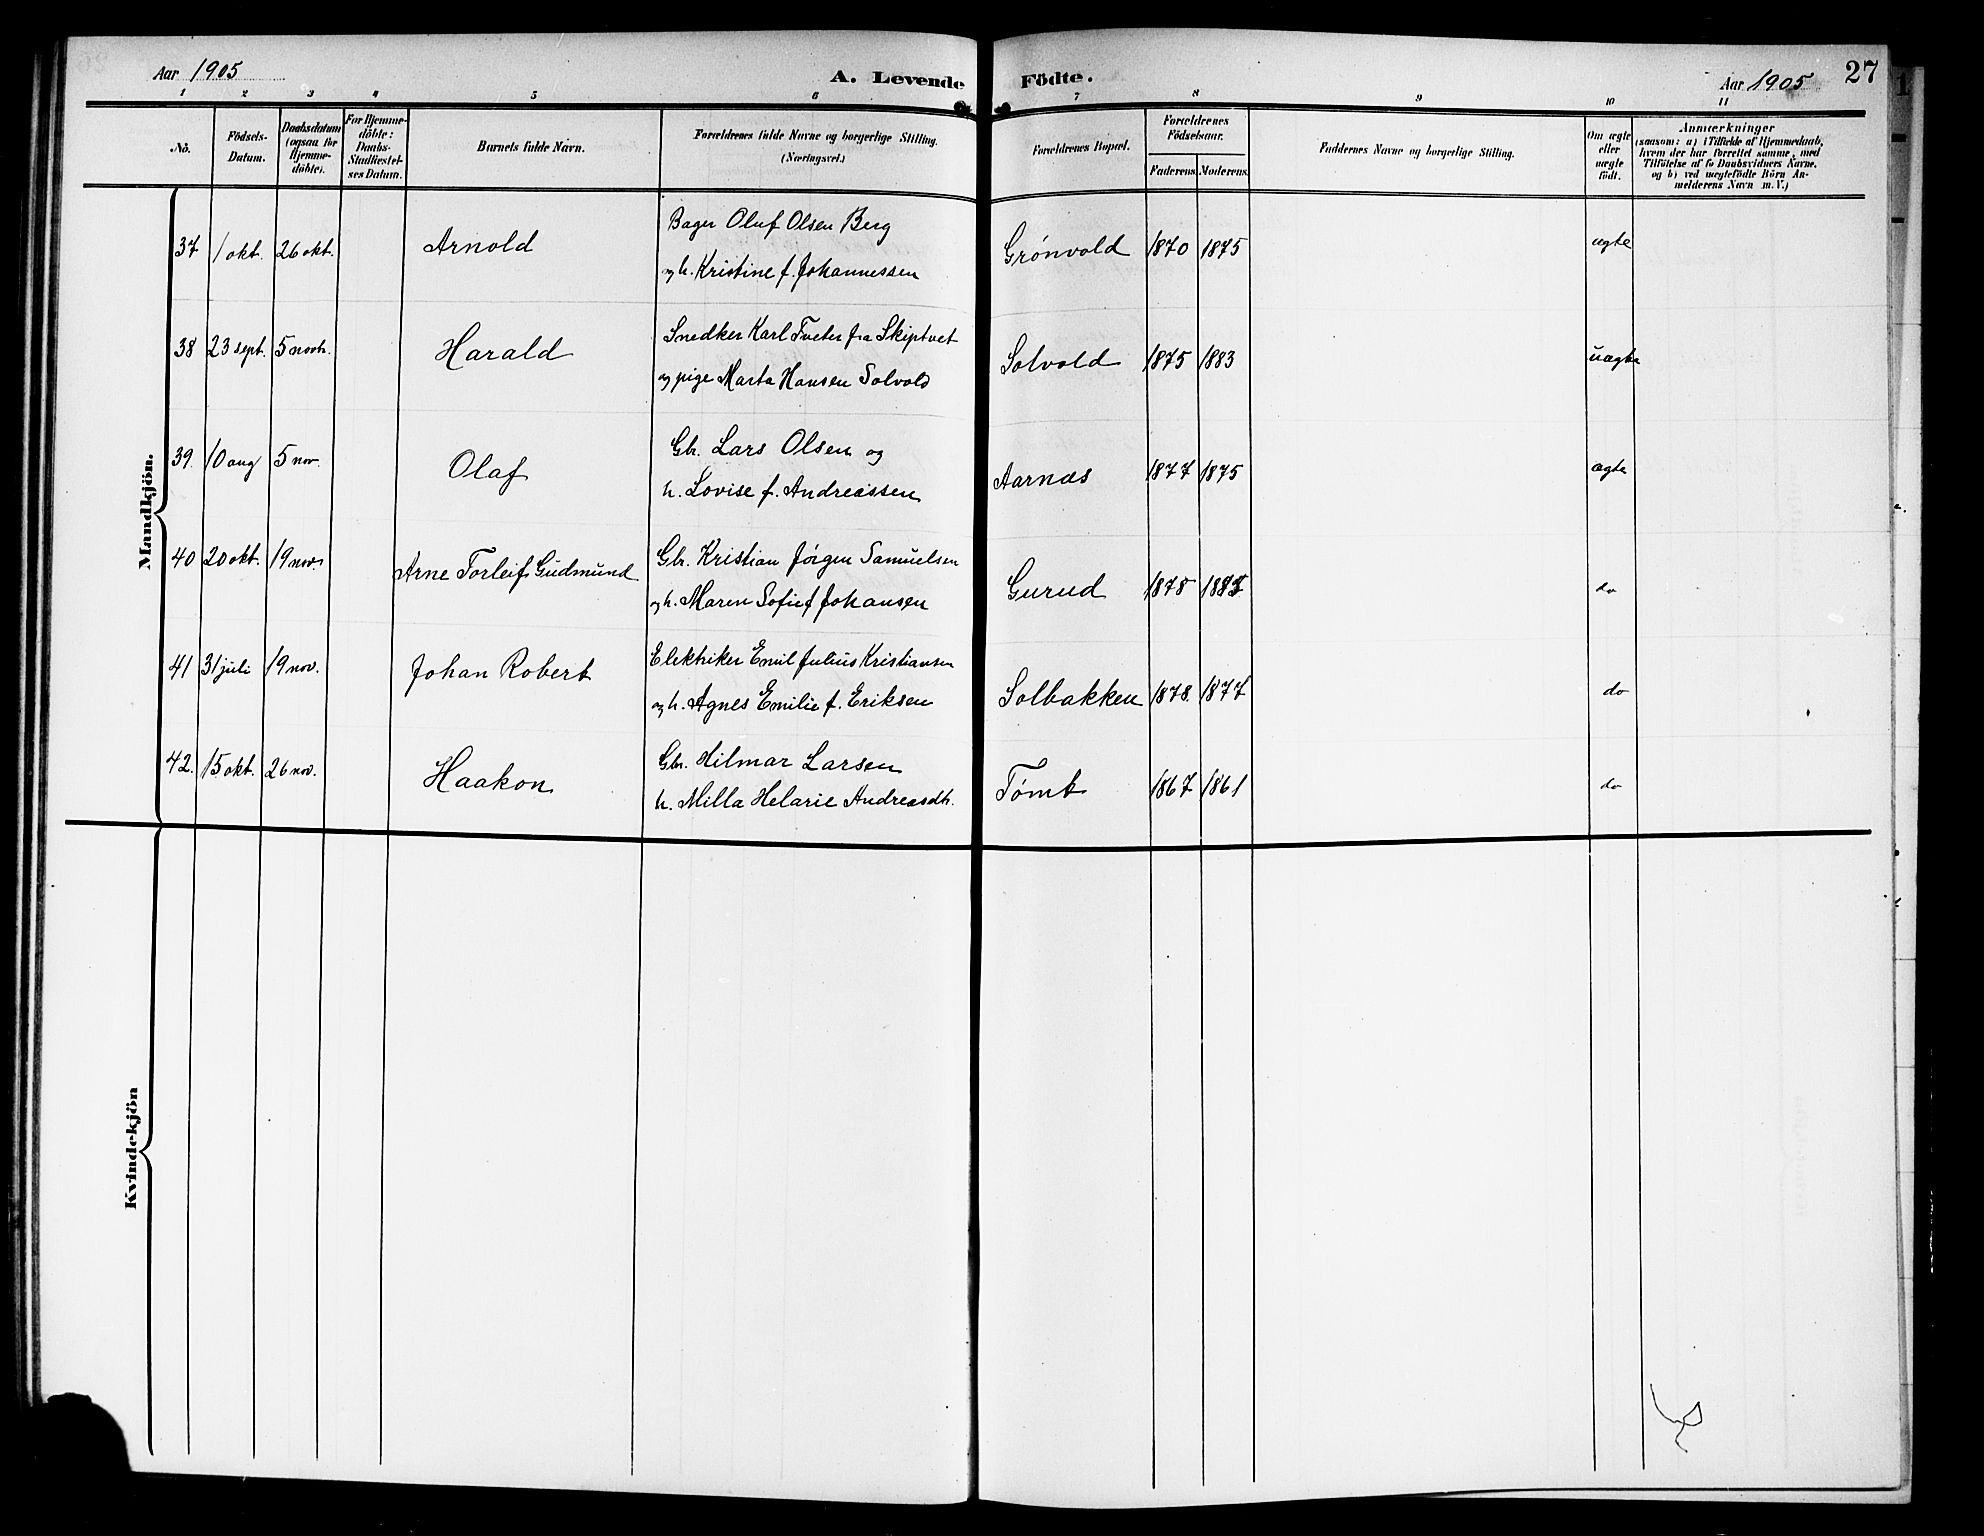 Aar 1905
A. Levende Födte.
Aar 1905
27
1 2 3 4 5 6 7 8 9 10 11
No.
Födsels-Datum.
Daabsdatum (ogsaa for Hjemmedöbte).
For Hjemmedöbte: Daabs-Stadfæstelses Datum.
Barnets fulde Navn.
Forældrenes fulde Navne og borgerlige Stilling. (Næringsvei.)
Forældrenes Bopæl.
Forældrenes Födselsaar.
Faderens. Moderens.
Faddernes Navne og borgerlige Stilling.
Om ægte eller uægte født.
Anmærkninger
(saasom: a) i Tilfælde af Hjemmedaab, hvem der har forrettet samme, med Tilföielse af to Daabsvidners Navne, og b) ved uægtefödte Börn Anmelderens Navn m. V.)
Mandkjön.
37 1 okt. 26 okt. Arnold Bager Oluf Olsen Berg
og h. Kristine f. Johannessen Grönvold 1870 1875 ægte
38 23 sept. 5 novb. Harald Snedker Karl Tveter fra Skiptvet
og pige Marta Hansen Solvold Solvold 1875 1883 uægte
39. 10 aug 5 nov. Olaf Gbr. Lars Olsen og
h. Lovise f. Andreassen Aarnæs 1877 1875 ægte
40 20 okt. 19 nov. Arne Torleif Gudmund Gbr. Kristian Jörgen Samuelsen
og h. Maren Sofie f Johansen Gurud 1878 do
41 31 juli 19 nov. Johan Robert Elektriker Emil Julius Kristiansen
og h. Agnes Emilie f. Eriksen Solbakken 1878. 1877 do
42. 15 okt. 26 nov. Haakon Gbr. Hilmar Larsen
h. Milla Helarie Andreasdt. Tömt 1867 1861 do
Kvindekjön